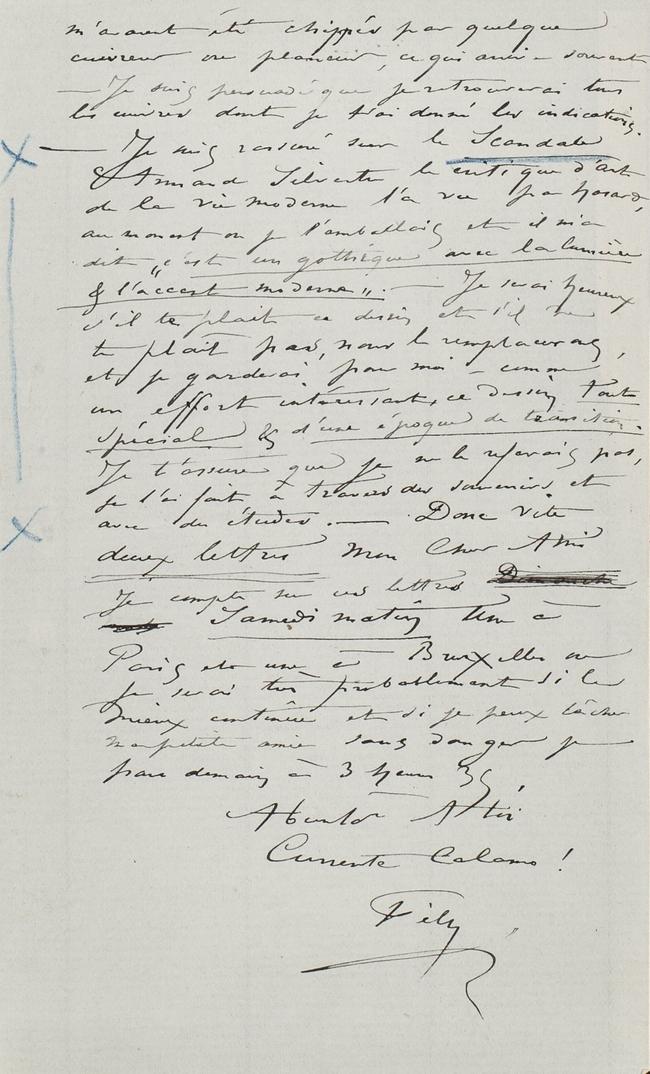 m'avaient été chippés par quelque
cuivreur ou planeur, ce qui arrive souvent
— Je suis persuadé que je retrouverai tous
les cuivres dont je t'ai donné les indications.
— Je suis rassuré sur le Scandale
& Armand Silvestre le critique d'art
de la vie moderne l'a vu par hasard,
au moment où je l'emballais et il m'a
dit "c'est un gothique avec la lumière
& l'accent moderne". — Je serai heureux
s'il te plait ce dessin et s'il ne
te plait pas, nous le remplacerons,
et je garderai pour moi – comme
un effort intéressant, ce dessin tout
spécial & d'une époque de transition.
Je t'assure que je ne le referais pas,
je l'ai fait à travers des souvenirs et
avec des études. — Donc vite
deux lettres mon Cher Ami
Je compte sur ces lettres Dimanche
Samedi matin Une à
Paris et une à Bruxelles où
je serai très probablement si le
mieux continue et si je peux lâcher
ma petite amie sans danger je
pars demain à 3 heures 35
A toi
Currente Calamo !
Fély